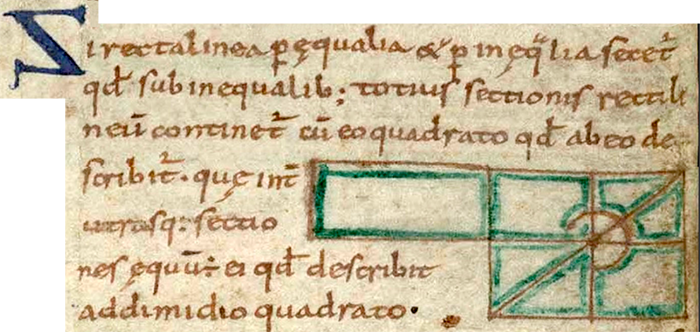 Si recta linea p̄ ęqualia & p̄ in ęq̄lia secet᷑
qđ sub inequalib; totius sectionis rectili
neū continet᷑ cū eo quadrato qđ ab eo de
scribit᷑. quę int̄
utrasq; sectio
nes ęquū ÷ ei qđ describit᷑
a dimidio quadrato.